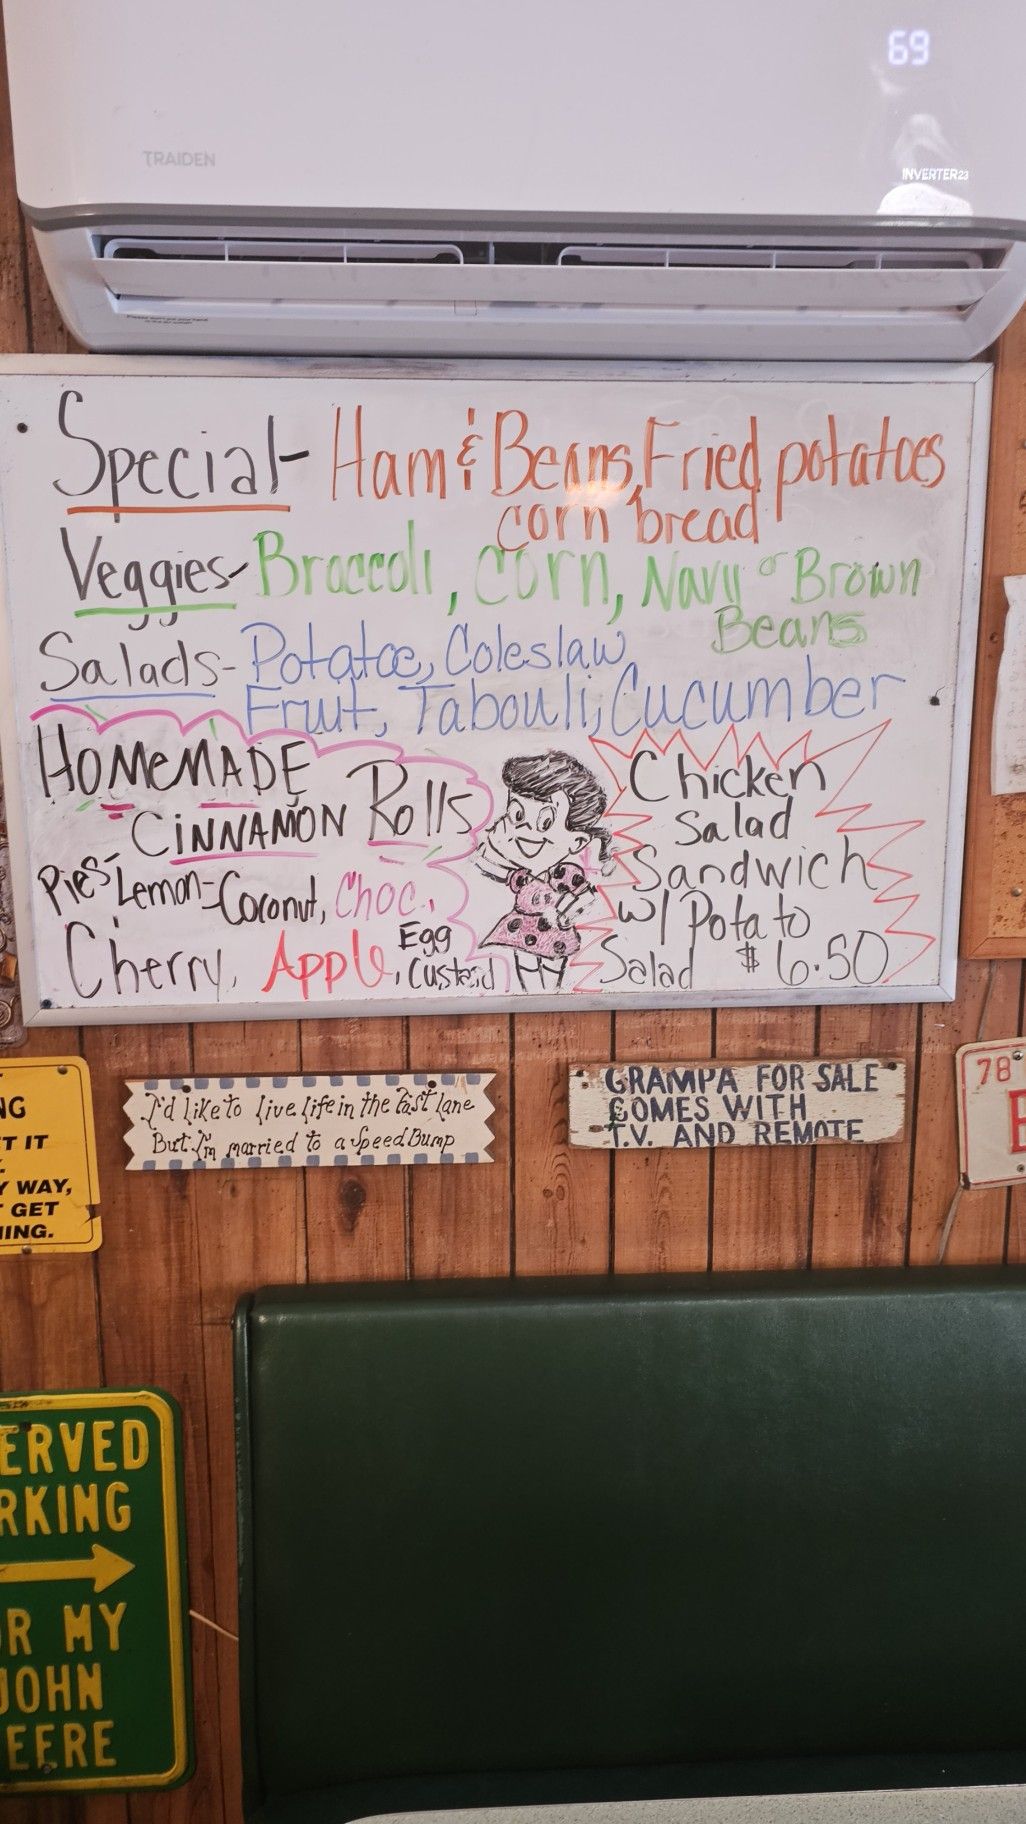 69
TRAIDEN
INVERTER23
Special- Ham & Beans, Fried potatoes
corn bread
Veggies- Broccoli, corn, Navy or Brown
Beans
Salads- Potatoe, Coleslaw
Fruit, Tabouli, Cucumber
HOMEMADE
CINNAMON Rolls
Pies- Lemon- Coconut, Choc.,
Cherry, Apple, Egg
Custard
Chicken
Salad
Sandwich
w/ Potato
Salad $6.50
NG
ET IT
Y WAY,
GET
ING.
I'd like to live life in the Fast lane
But I'm married to a Speed Bump
GRAMPA FOR SALE
COMES WITH
T.V. AND REMOTE
78
ERVED
RKING
R MY
JOHN
EERE